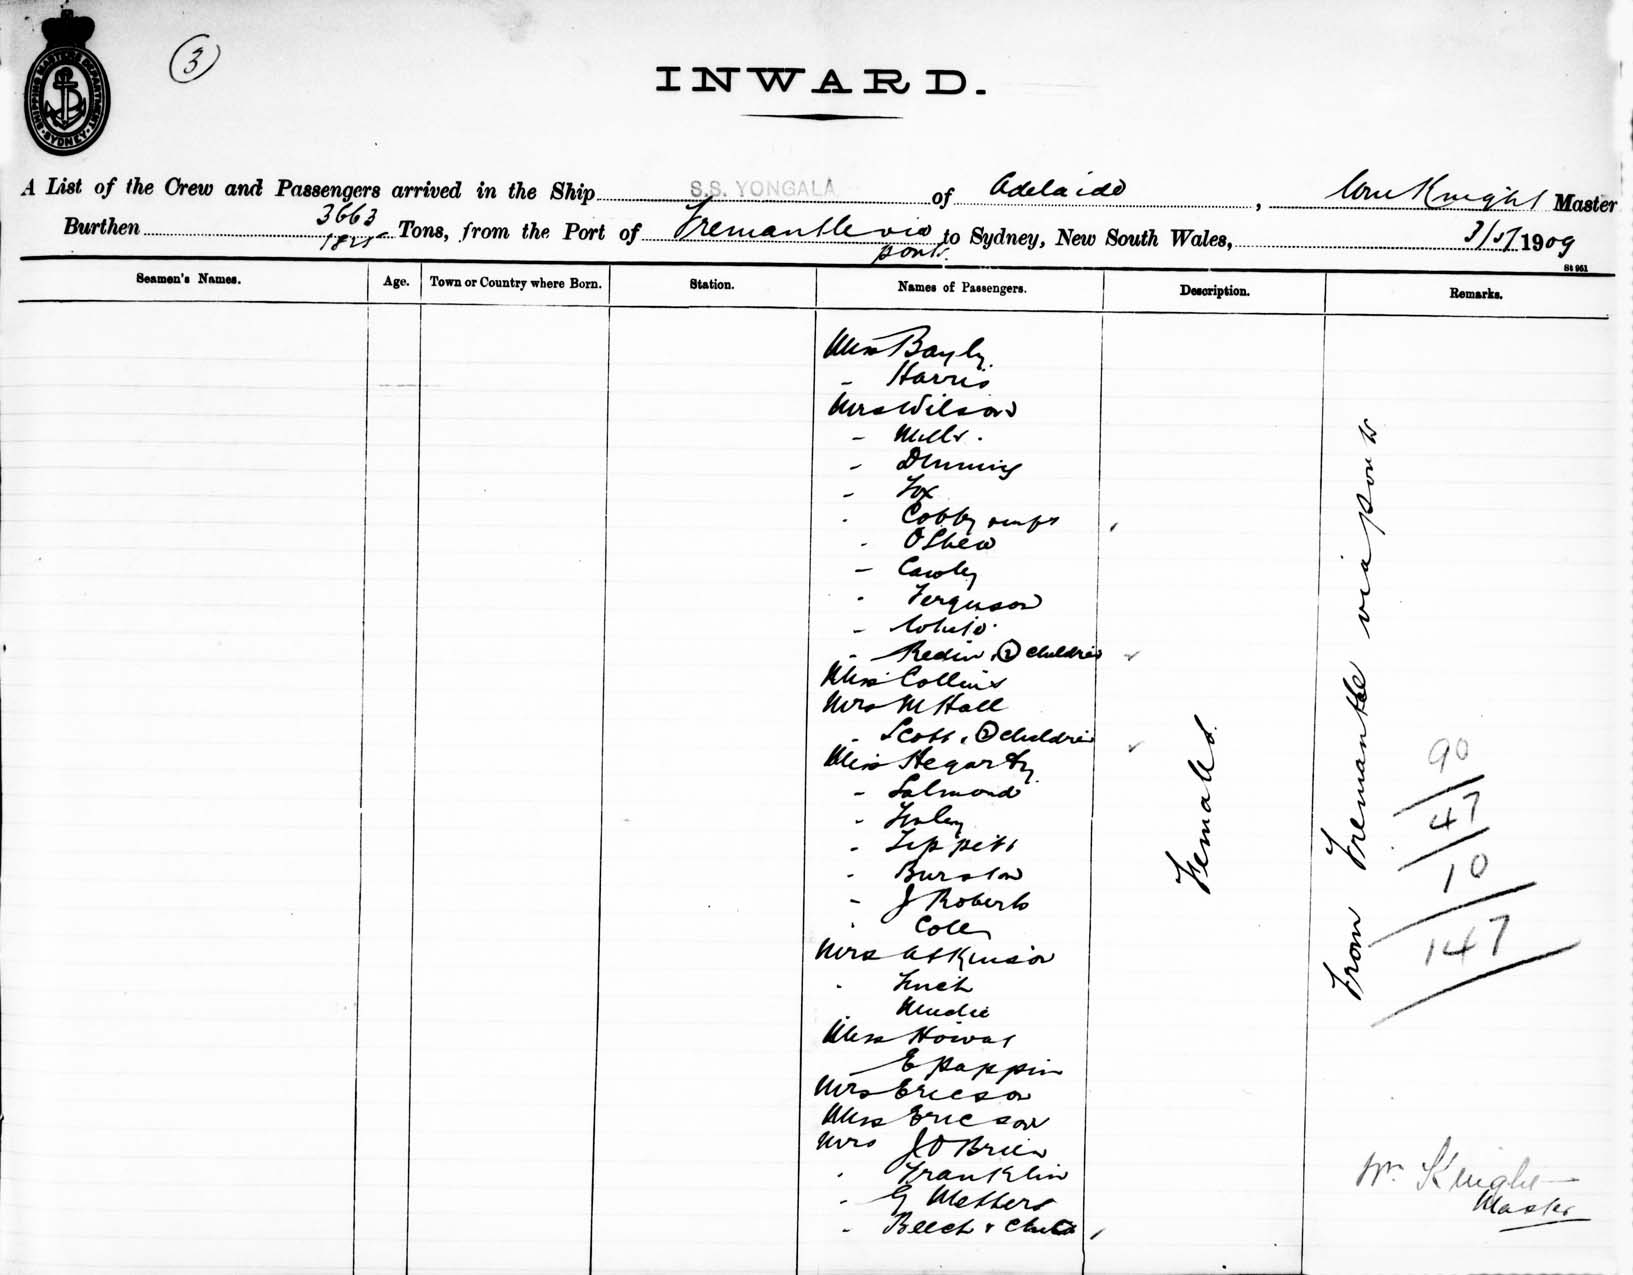 SHIPPING MASTER'S DEPARTMENT
SYDNEY
3
INWARD.
A List of the Crew and Passengers arrived in the Ship S.S. YONGALA of Adelaide, Wm Knight Master
Burthen 3663 Tons, from the Port of Fremantle via ports to Sydney, New South Wales, 3/5/1909
1825
St 961
Seamen's Names. Age. Town or Country where Born. Station. Names of Passengers. Description. Remarks.
Miss Bayly
- Harris
Mrs Wilson
- Mills.
- Denning
- Fox
- Cobby
- OShea
- Cawley
- Ferguson
- White
- Redin 2 children
Miss Collins
Mrs M Hall
- Scott 2 children
Miss Hegarty
- Salmond
- Finley
- Tippett
- Burston
- J Roberts
- Coles
Mrs Atkinson
- Finch
Mudie
Miss Howat
- E Pappin
Mrs Ericson
Miss Ericson
Mrs J O Brien
- Franklin
- G Mathers
- Beech & Child
Females.
From Fremantle via ports
90
47
10
147
Wm Knight
Master